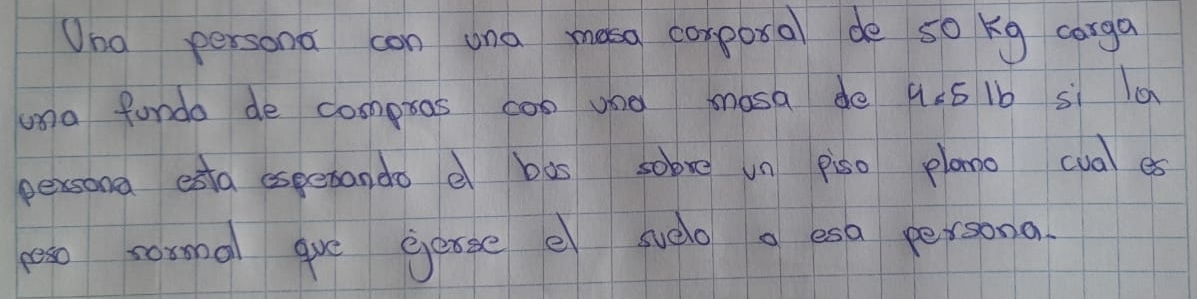 Una persona con una masa corporal de 50 Kg carga
una funda de compras con una masa de 4.5 lb si la
persona esta esperando el bus sobre un piso plano cual es
peso normal que ejerse el suelo a esa persona.